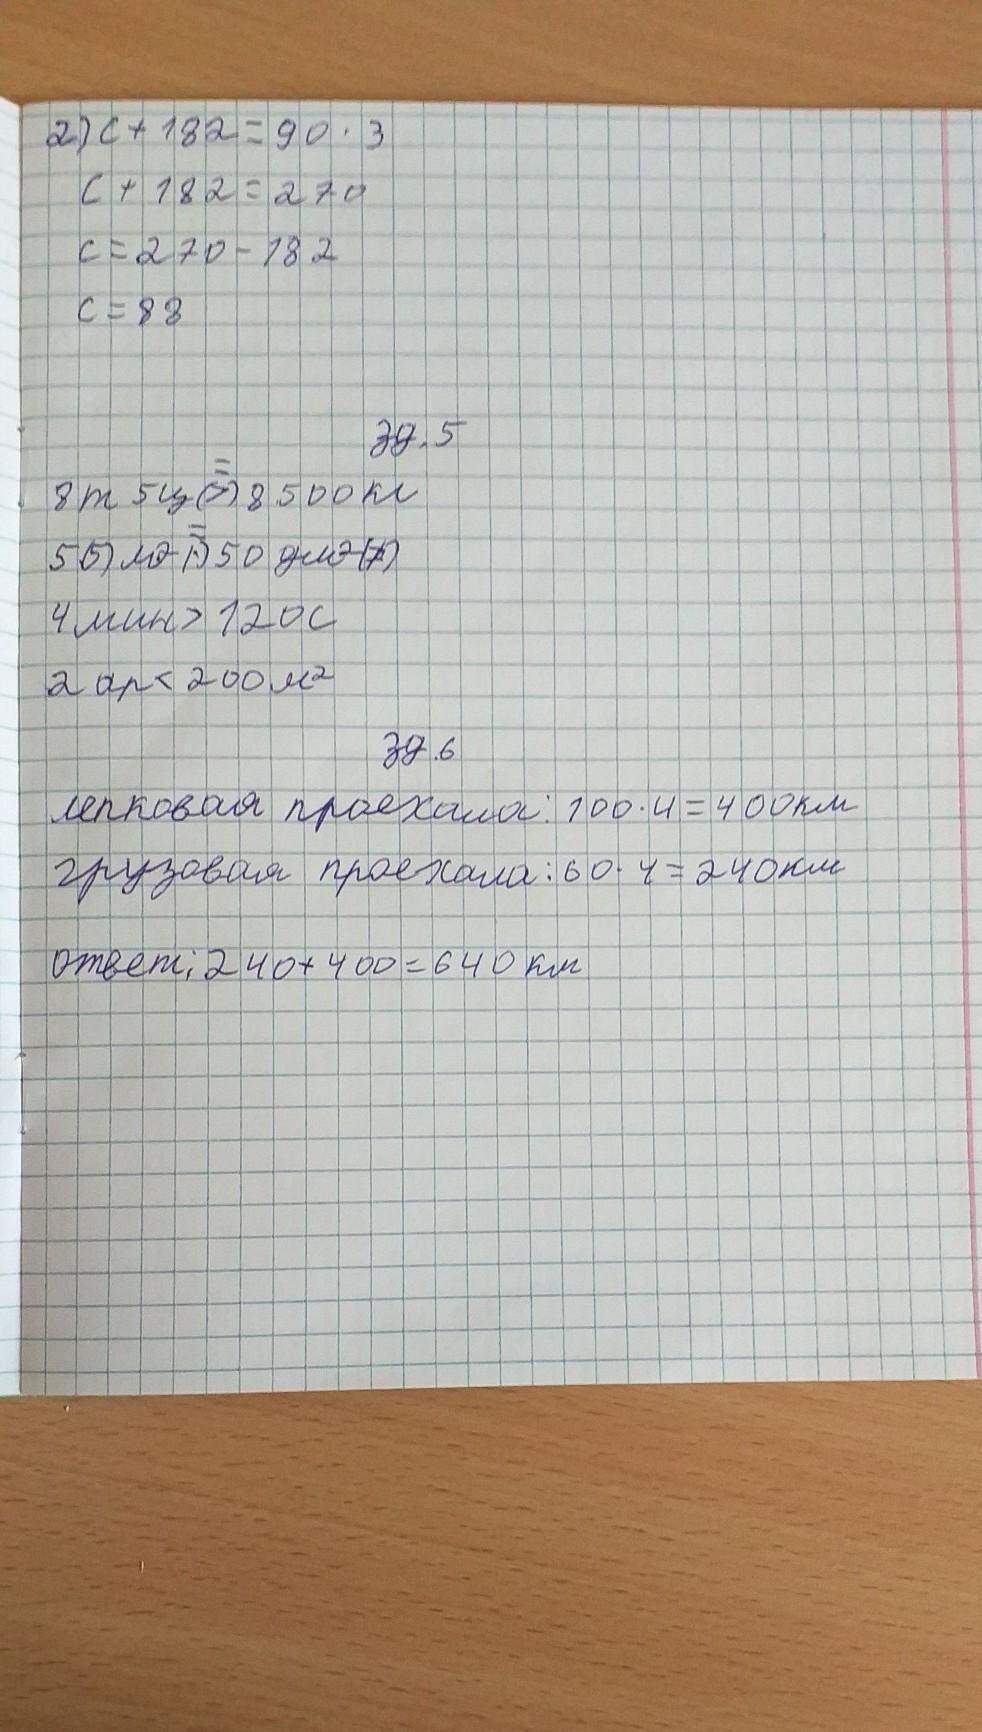 2) c + 182 = 90 · 3
c + 182 = 270
c = 270 - 182
c = 88
зд. 5
8 т 5 ц (>) = 8 500 кг
5(5) м2 = 50 дм2
4 мин > 120 с
2 ар < 200 м²
зд. 6
легковая проехала: 100 · 4 = 400 км
грузовая проехала: 60 · 4 = 240 км
ответ: 240 + 400 = 640 км